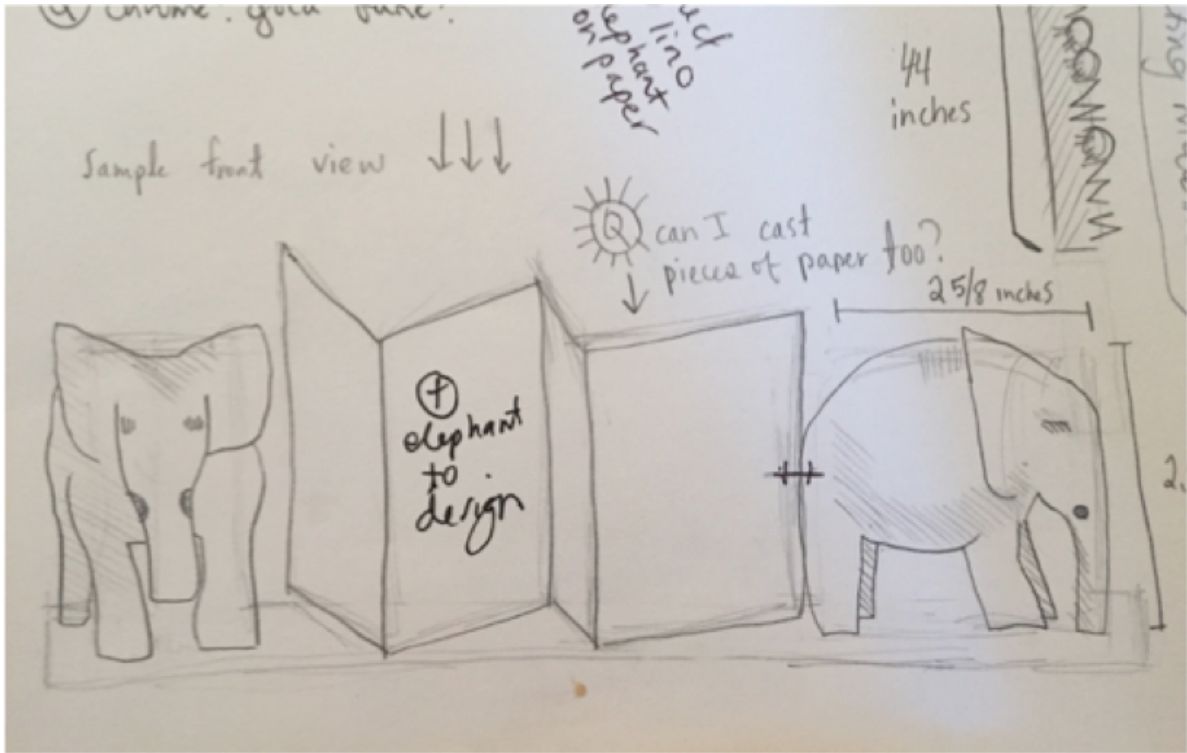 lino
on paper
44
inches
Sample front view
Q can I cast
pieces of paper too?
2 5/8 inches
+
elephant
to
design
2.